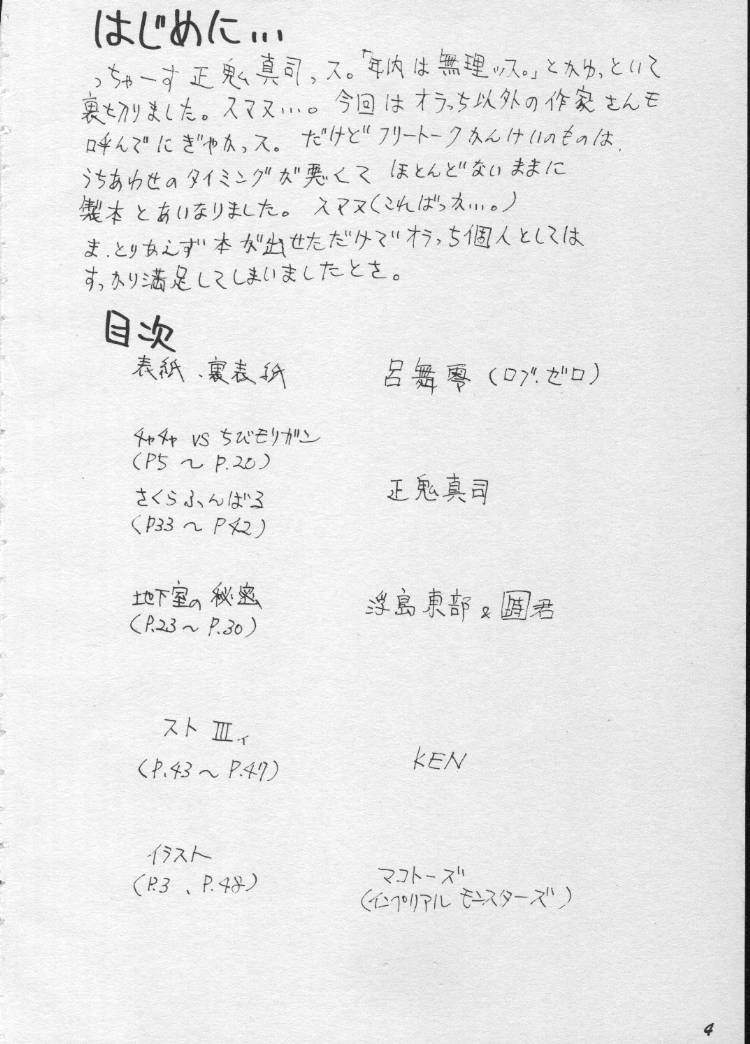 はじめに…
っちゃーす 正鬼真司っス。「年内は無理ッス。」とかゆっといて
裏を切りました。スマヌ…。今回はオラっち以外の作家さんモ
呼んでにぎやかっス。だけどフリートークかんけいのものは、
うちあわせのタイミングが悪くて ほとんどないままに
製本とあいなりました。スマヌ(こればっかい…。)
ま、とりあえず本が出せただけでオラっち個人としては
すっかり満足してしまいましたとさ。
目次
表紙、裏表紙 呂舞零(ロブ・ゼロ)
チャチャ VS ちびモリガン
(P5 〜 P.20)
さくらふんばる 正鬼真司
(P33 〜 P42)
地下室の秘密 浮島東部 & 時君
(P.23 〜 P.30)
スト III
(P.43 〜 P.47) KEN
イラスト
(P.3、P.48) マコトーズ
(インペリアル モンスターズ)
4